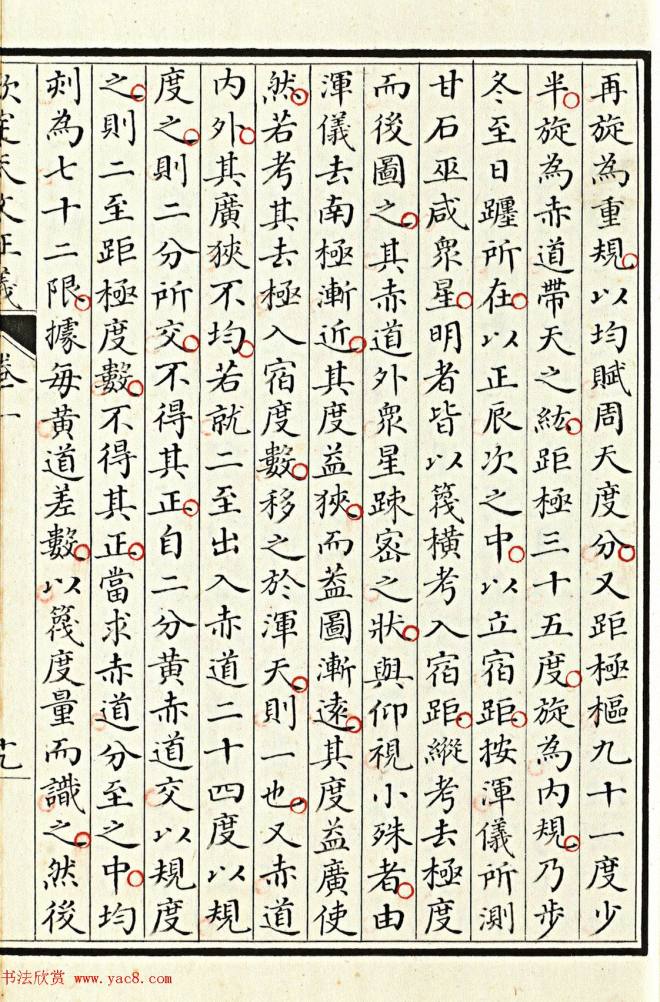 再旋為重規以均賦周天度分又距極樞九十一度少
半旋為赤道帶天之紘距極三十五度旋為内規乃步
冬至日躔所在以正辰次之中以立宿距按渾儀所測
甘石巫咸衆星明者皆以篾横考入宿距縱考去極度
而後圖之其赤道外衆星踈宻之狀與仰視小殊者由
渾儀去南極漸近其度益狹而葢圖漸遠其度益廣使
然若考其去極入宿度數移之於渾天則一也又赤道
内外其廣狹不均若就二至出入赤道二十四度以規
度之則二分所交不得其正自二分黄赤道交以規度
之則二至距極度數不得其正當求赤道分至之中均
刻為七十二限據每黄道差數以篾度量而識之然後
欽定天文正義 卷一 十九
书法欣赏 www.yac8.com